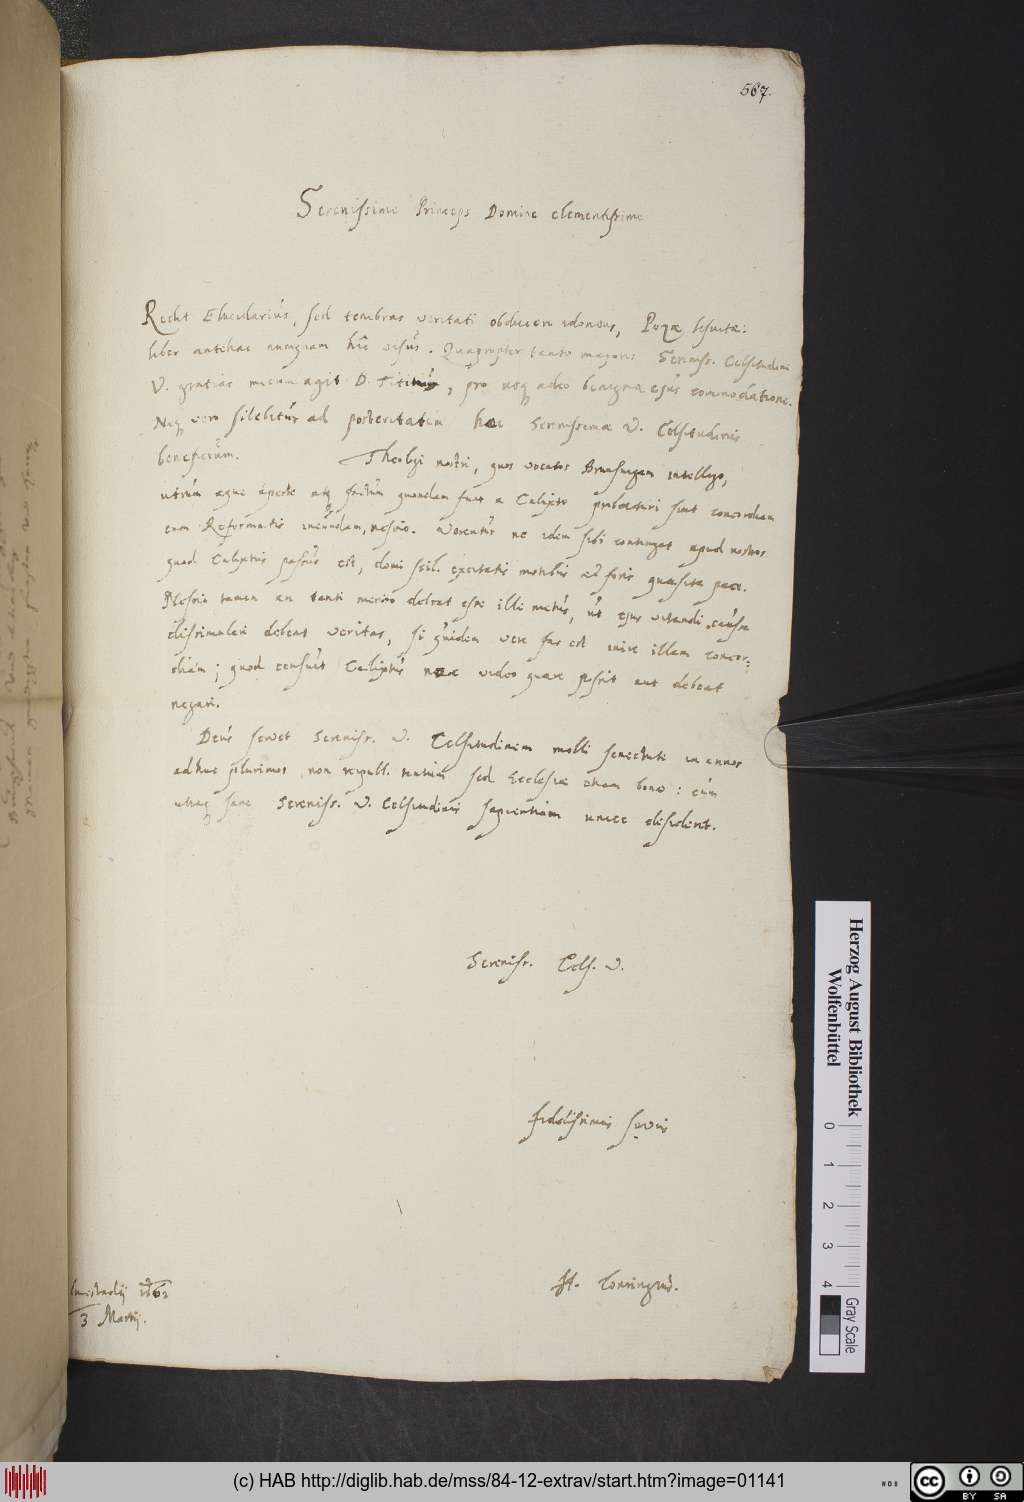 567.
Serenissime Princeps Domine clementissime
Rediit Elucidarius, sed tenebras veritati obducere idoneus, Pozae Jesuitae:
liber antehac nunquam hîc visus. Quapropter tanto majores Sereniss. Celsitudini
V. gratias mecum agit D. Titius, pro usq adeo benigna ejus commodatione.
Neq vero silebitur ad posteritatem hoc Serenissimae V. Celsitudinis
beneficium. Theologi nostri, quos vocatos Brunsvigam intelligo,
utrum aeque aperte atq quondam fuit a Calixto professuri sint concordiam
cum Reformatis ineundam, nescio. Verentur ne idem sibi contingat apud nostros
quod Calixtus passus est, domi scil. excitatis motibus ob foris quaesita pace.
Nescio tamen an tanti merito debeat esse illi metus, ut ejus vitandi causa
dissimulari debeat veritas, si quidem vere fas est inire illam concor-
diam; quod censuit Calixtus nec video quare possit aut debeat
negari.
Deus servet Sereniss. V. Celsitudinem molli senectute in annos
adhuc plurimos non reipubl. tantum sed Ecclesiae etiam bono: cum
utraq sane Sereniss. V. Celsitudinis sapientiam unice desideret.
Sereniss. Cels. V.
fidelissimus servus
H. Conringius.
1662
3 Martij.
Herzog August Bibliothek
Wolfenbüttel
0 1 2 3 4
Gray Scale
(c) HAB http://diglib.hab.de/mss/84-12-extrav/start.htm?image=01141
WDB
cc BY SA